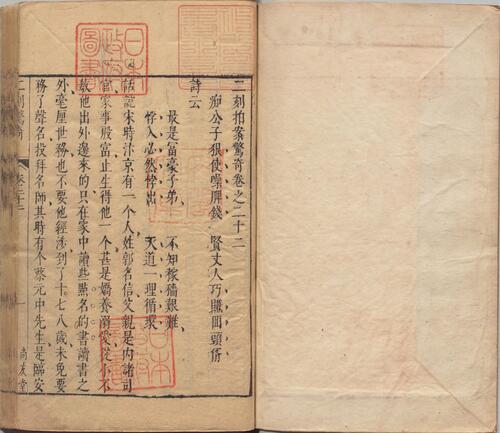 二刻拍案驚奇卷之二十二
痴公子狠使噪脾錢 賢丈人巧賺囬頭婿
詩云
最是富豪子弟 不知稼穡艱難
悖入必然悖出 天道一理循環
話說宋時汴京有一個人姓郭名信父親是內諸司
官家事殷富止生得他一個甚是嬌養溺愛從小不
教他出外邊來的只在家中讀些點名的書讀書之
外毫厘世務也不要他經涉到了十七八歲未免要
務了聲名投拜名師其時有個蔡元中先生是臨安
二刻驚奇 卷二十二 一 尚友堂
日本
政府
圖書